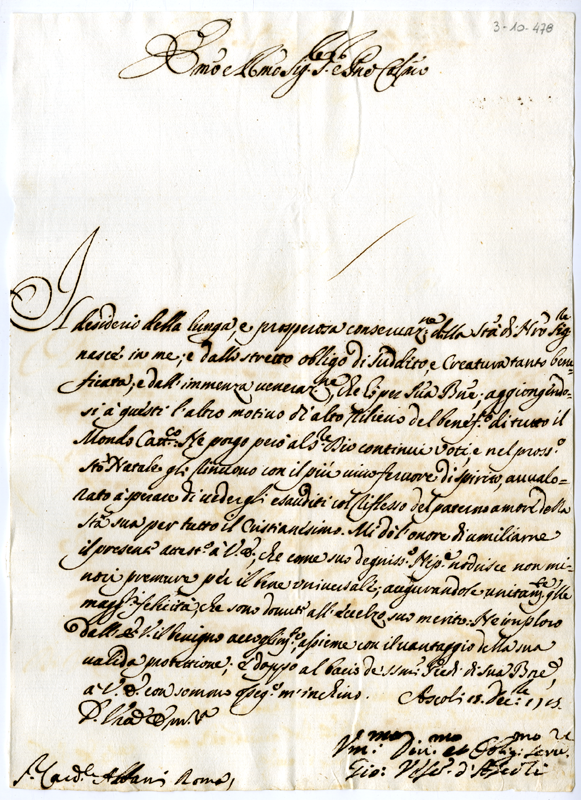 3-10-478
Emo e Rmo Sig.re P.re e Pne Colmo
Il desiderio della lunga, e prosperosa conservaz.ne della Stà di Nro Sig.re
nasce in me, e dallo stretto obligo di suddito e Creatura tanto bene-
ficata, e dall'immenza veneraz.ne, che hò per Sua Bne, aggiongendo-
si à questi l'altro motivo di alto rilievo del benef.o di tutto il
Mondo Catt.o. Ne porgo però al S.re Dio continui voti, e nel pross.o
Sto Natale gli rinuovo con il più vivo fervore di spirito, avvalo-
rato à sperare di vedergli esauditi col riflesso del paterno amore della
Stà sua per tutto il Cristianisimo. Mi dò l'onore di umiliarne
il presente attest.o à V.E., che come suo degniss.o Nip.e nodrisce non mi-
nori premure per il bene universale, augurandole unitam.te quelle
magg.ri felicità, che sono dovute all'eccelzo suo merito. Ne imploro
dall'E.V. il benigno accoglim.to, assieme con il vantaggio della sua
valida protezzione; E doppo al bacio de ssmi Piedi di Sua Bne,
à V.E. con sommo osseq.o m'inchino. Ascoli 18. Dec.re 1715
D. V.
Um.mo Div.mo et Oblig.mo Serv.re
Gio: Vesc.o d'Ascoli
S.r Card.le Albani Roma,